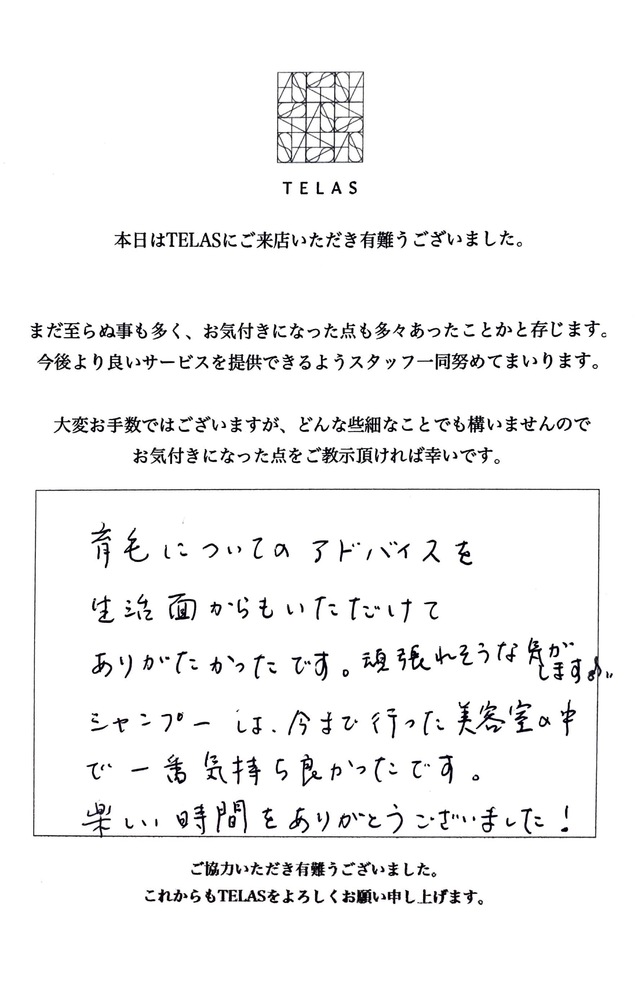 TELAS
本日はTELASにご来店いただき有難うございました。
まだ至らぬ事も多く、お気付きになった点も多々あったことかと存じます。
今後より良いサービスを提供できるようスタッフ一同努めてまいります。
大変お手数ではございますが、どんな些細なことでも構いませんので
お気付きになった点をご教示頂ければ幸いです。
育毛についてのアドバイスを
生活面からもいただけて
ありがたかったです。頑張れそうな気がします♪
シャンプーは、今まで行った美容室の中
で一番気持ち良かったです。
楽しい時間をありがとうございました！
ご協力いただき有難うございました。
これからもTELASをよろしくお願い申し上げます。